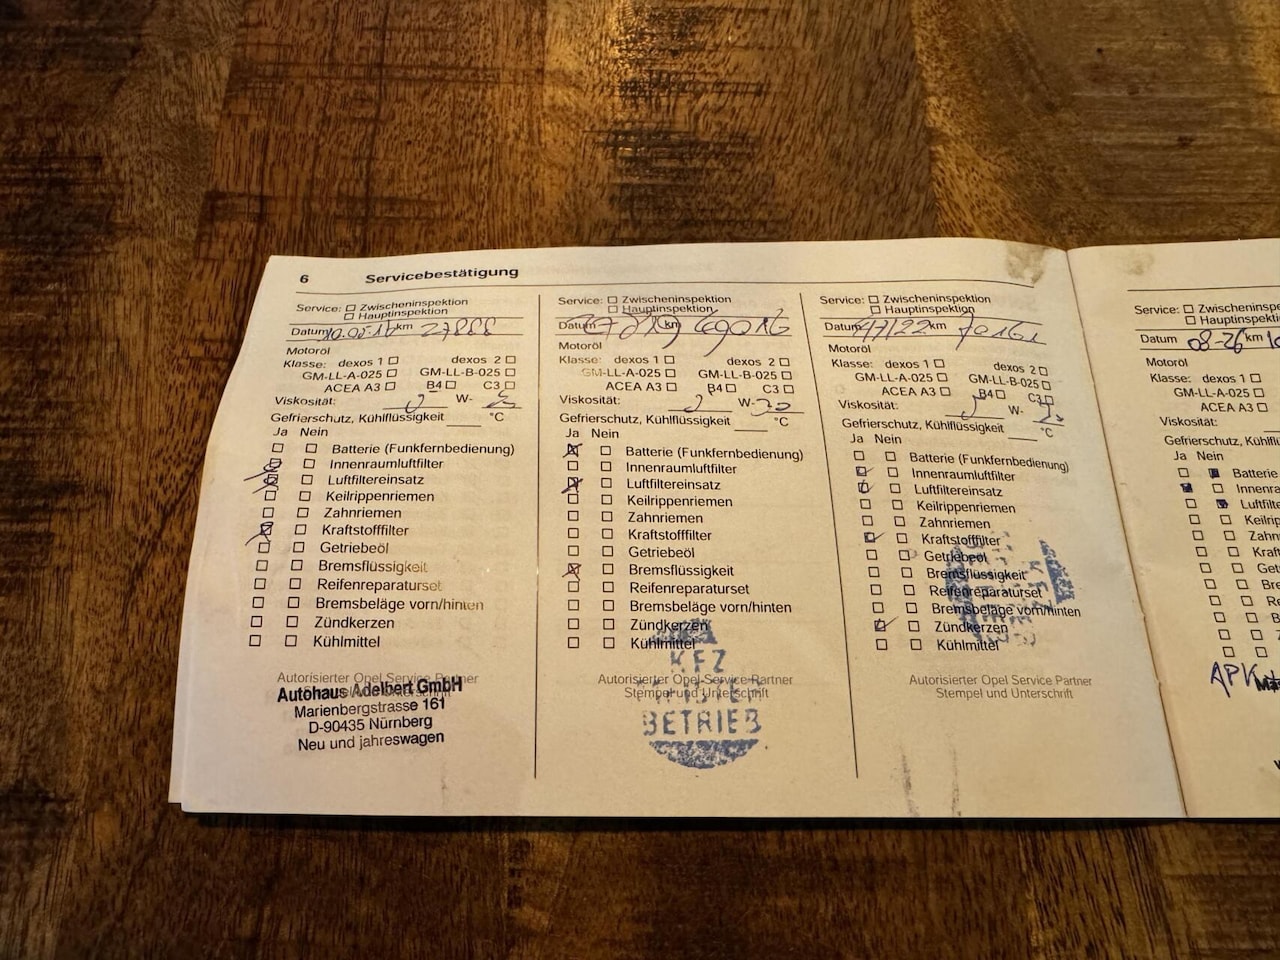 6 Servicebestätigung
Service: Zwischeninspektion
Hauptinspektion
Datum km
Motoröl
Klasse: dexos 1 dexos 2
GM-LL-A-025 GM-LL-B-025
ACEA A3 B4 C3
Viskosität: W-
Gefrierschutz, Kühlflüssigkeit °C
Ja Nein
Batterie (Funkfernbedienung)
Innenraumluftfilter
Luftfiltereinsatz
Keilrippenriemen
Zahnriemen
Kraftstofffilter
Getriebeöl
Bremsflüssigkeit
Reifenreparaturset
Bremsbeläge vorn/hinten
Zündkerzen
Kühlmittel
Autorisierter Opel Service Partner
Stempel und Unterschrift
Autohaus Adelbert GmbH
Marienbergstrasse 161
D-90435 Nürnberg
Neu und jahreswagen
Service: Zwischeninspektion
Hauptinspektion
Datum km
Motoröl
Klasse: dexos 1 dexos 2
GM-LL-A-025 GM-LL-B-025
ACEA A3 B4 C3
Viskosität: W-
Gefrierschutz, Kühlflüssigkeit °C
Ja Nein
Batterie (Funkfernbedienung)
Innenraumluftfilter
Luftfiltereinsatz
Keilrippenriemen
Zahnriemen
Kraftstofffilter
Getriebeöl
Bremsflüssigkeit
Reifenreparaturset
Bremsbeläge vorn/hinten
Zündkerzen
Kühlmittel
Autorisierter Opel Service Partner
Stempel und Unterschrift
KFZ
BETRIEB
Service: Zwischeninspektion
Hauptinspektion
Datum km
Motoröl
Klasse: dexos 1 dexos 2
GM-LL-A-025 GM-LL-B-025
ACEA A3 B4 C3
Viskosität: W-
Gefrierschutz, Kühlflüssigkeit °C
Ja Nein
Batterie (Funkfernbedienung)
Innenraumluftfilter
Luftfiltereinsatz
Keilrippenriemen
Zahnriemen
Kraftstofffilter
Getriebeöl
Bremsflüssigkeit
Reifenreparaturset
Bremsbeläge vorn/hinten
Zündkerzen
Kühlmittel
Autorisierter Opel Service Partner
Stempel und Unterschrift
Service: Zwischeninspe
Hauptinspekti
Datum 08-26 km
Motoröl
Klasse: dexos 1
GM-LL-A-025
ACEA A3
Viskosität:
Gefrierschutz, Kühlflü
Ja Nein
Batterie
Innenra
Luftfilte
Keilrip
Zahn
Kraft
Get
Bre
Re
B
Z